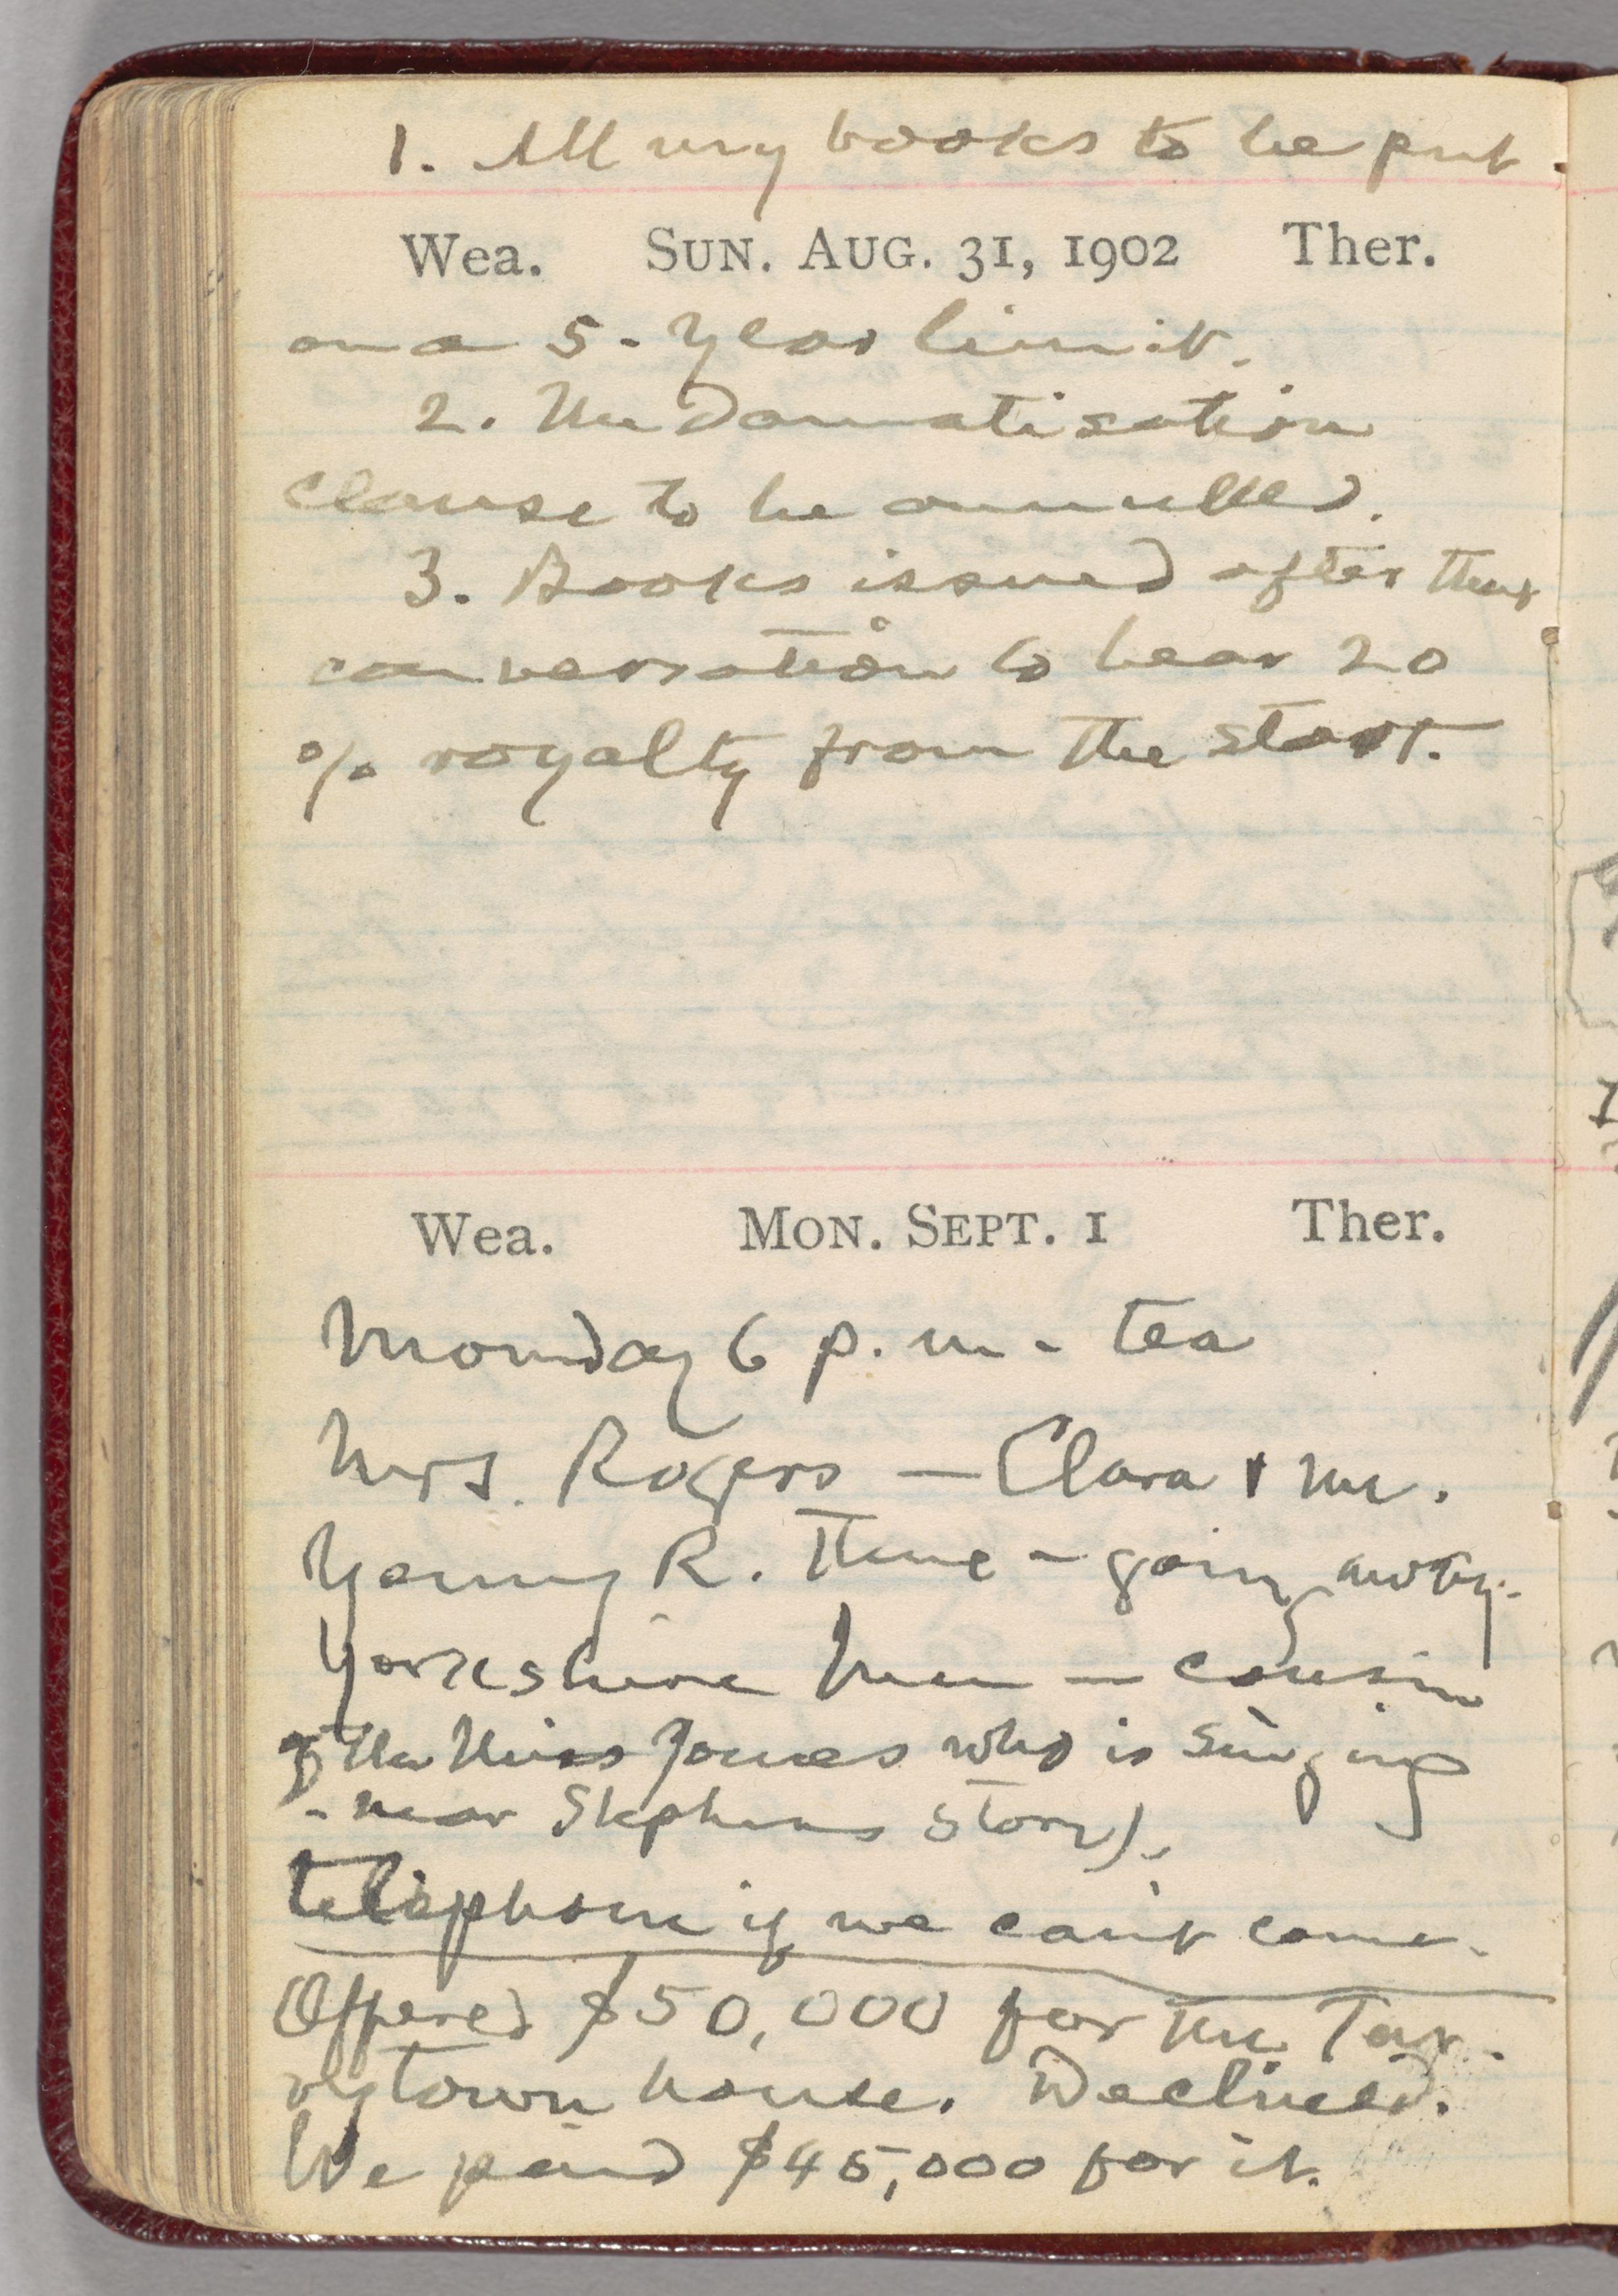 1. All my books to be put
Wea. SUN. AUG. 31, 1902 Ther.
on a 5-year limit.
2. The Dramatisation
clause to be annulled.
3. Books issued after that
conversation to bear 20
% royalty from the start.
Wea. MON. SEPT. 1 Ther.
Monday 6 p.m. - tea
Mrs. Rogers — Clara & me.
Young R. there - going away.
Yorkshire men — cousin
of the Miss Jones who is singing
- near Stephens story).
telephone if we can't come.
Offered $50,000 for the Tar-
rytown house. Declined.
We paid $45,000 for it.